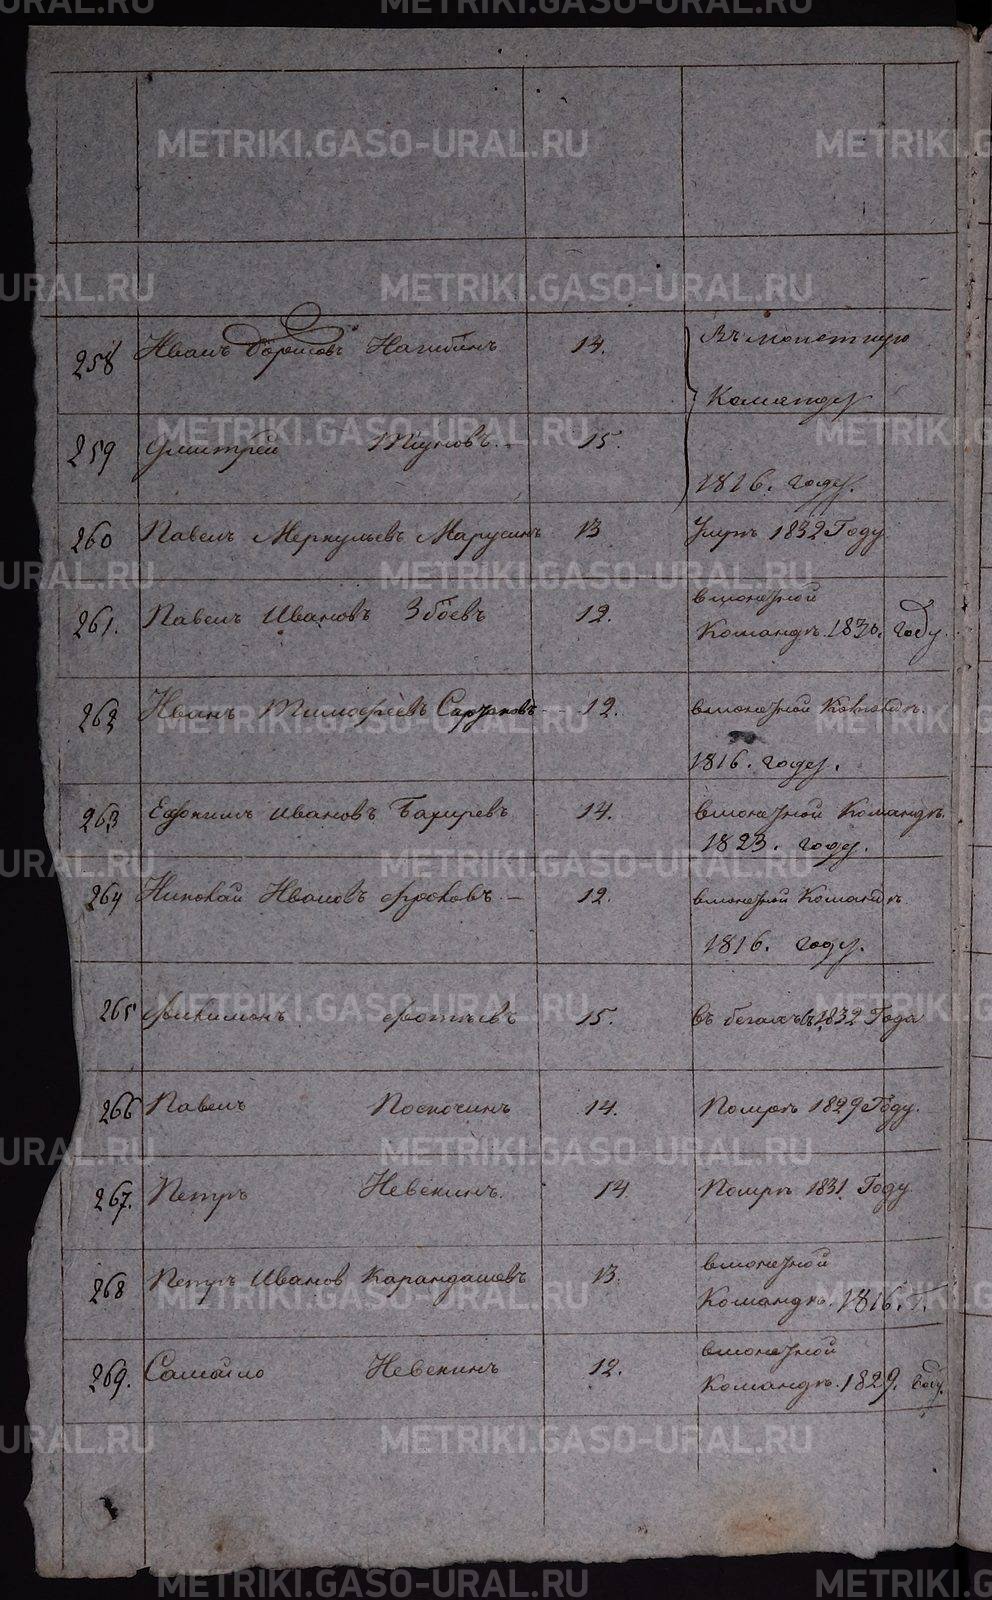 METRIKI.GASO-URAL.RU
258 Иванъ Борисовъ Нагибинъ 14. Въ монетную
Команду
259 Дмитрей Тіуновъ. 15. 1816. году.
260 Павелъ Меркульевъ Марусинъ 13 Умръ 1832 Году
261. Павелъ Ивановъ Збоевъ 12. вмонетной
Командѣ. году.
262 Иванъ Тимофеевъ 12. вмонетной Командѣ.
1816. году.
263 Ефимъ Ивановъ Бахиревъ 14. вмонетной Командѣ.
1823. году.
264 Николай Ивановъ Фроловъ. – 12. вмонетной Командѣ.
1816. году.
265 Филимонъ Фотѣевъ 15. Въ бегахъ съ 1832 Года
266 Павелъ Поскочинъ 14. Помръ 1829 Году.
267. Петръ Невекинъ. 14. Помръ 1831 Году
268 Петръ Иванов Карандашевъ 13. вмонетной
Командѣ. 1816. Г.
269. Самойло Невекинъ 12. вмонетной
Командѣ. 1829. году.